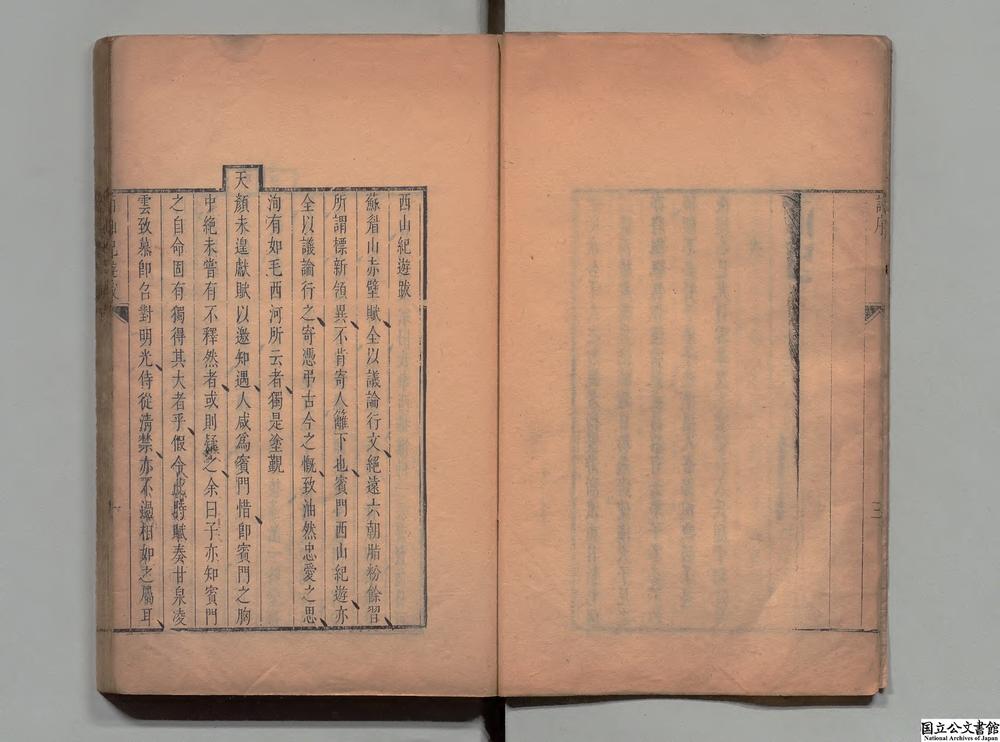 三
西山紀遊跋
蘇眉山赤壁賦全以議論行文絕遠六朝脂粉餘習
所謂標新領異不肯寄人籬下也賓門西山紀遊亦
全以議論行之寄憑弔古今之慨致油然忠愛之思
洵有如毛西河所云者獨是塗覲
天顏未遑獻賦以邀知遇人咸爲賓門惜卽賓門之胸
中絶未嘗有不釋然者或則疑之余曰子亦知賓門
之自命固有獨得其大者乎假令此時賦奏甘泉凌
雲致慕卽名對明光侍從清禁亦不過相如之屬耳
西山紀遊跋
国立公文書館
National Archives of Japan